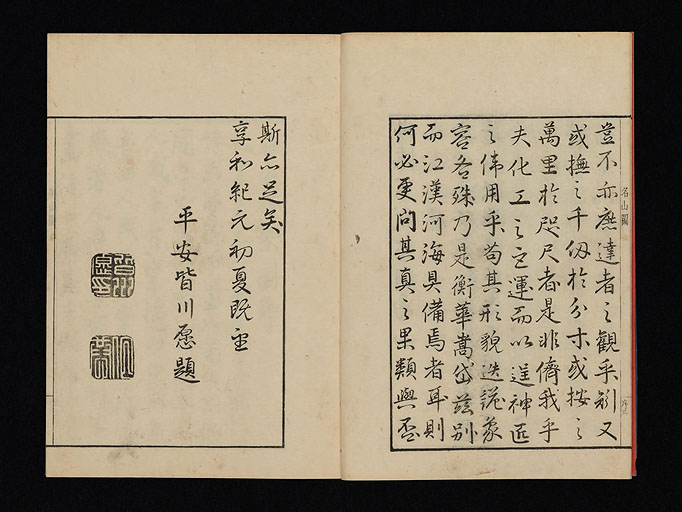 豈不亦庶達者之觀乎矧又
或撫之千仭於分寸或按之
萬里於咫尺者是非儕我乎
夫化工之運而以逞神匠
之偉用乎苟其形貌迭詭象
容各殊乃是衡華嵩岱茲別
而江漢河海具備焉者耳則
何必更問其真之果類與否
名山圖
斯亦足矣
享和紀元初夏既望
平安皆川愿題